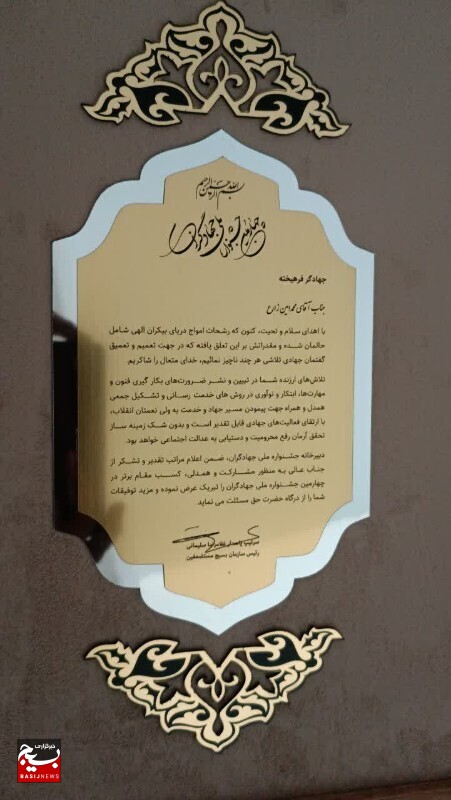 بسم الله الرحمن الرحیم
چهارمین جشنواره ملی جهادگران
جهادگر فرهیخته
جناب آقای محمدامین زارع
با اهدای سلام و تحیت، کنون که رشحات امواج دریای بیکران الهی شامل
حالمان شده و مقدراتش بر این تعلق یافته که در جهت تعمیم و تعمیق
گفتمان جهادی تلاشی هر چند ناچیز نمائیم، خدای متعال را شاکریم.
تلاش‌های ارزنده شما در تبیین و نشر ضرورت‌های بکار گیری فنون و
مهارت‌ها، ابتکار و نوآوری در روش های خدمت رسانی و تشکیل جمعی
همدل و همراه جهت پیمودن مسیر جهاد و خدمت به ولی نعمتان انقلاب،
با ارتقای فعالیت‌های جهادی قابل تقدیر است و بدون شک زمینه ساز
تحقق آرمان رفع محرومیت و دستیابی به عدالت اجتماعی خواهد بود.
دبیرخانه جشنواره ملی جهادگران، ضمن اعلام مراتب تقدیر و تشکر از
جناب عالی به منظور مشارکت و همدلی، کسب مقام برتر در
چهارمین جشنواره ملی جهادگران را تبریک عرض نموده و مزید توفیقات
شما را از درگاه حضرت حق مسئلت می نماید
سرتیپ پاسدار غلامرضا سلیمانی
رئیس سازمان بسیج مستضعفین
خبرگزاری
بسیج
BASIJNEWS